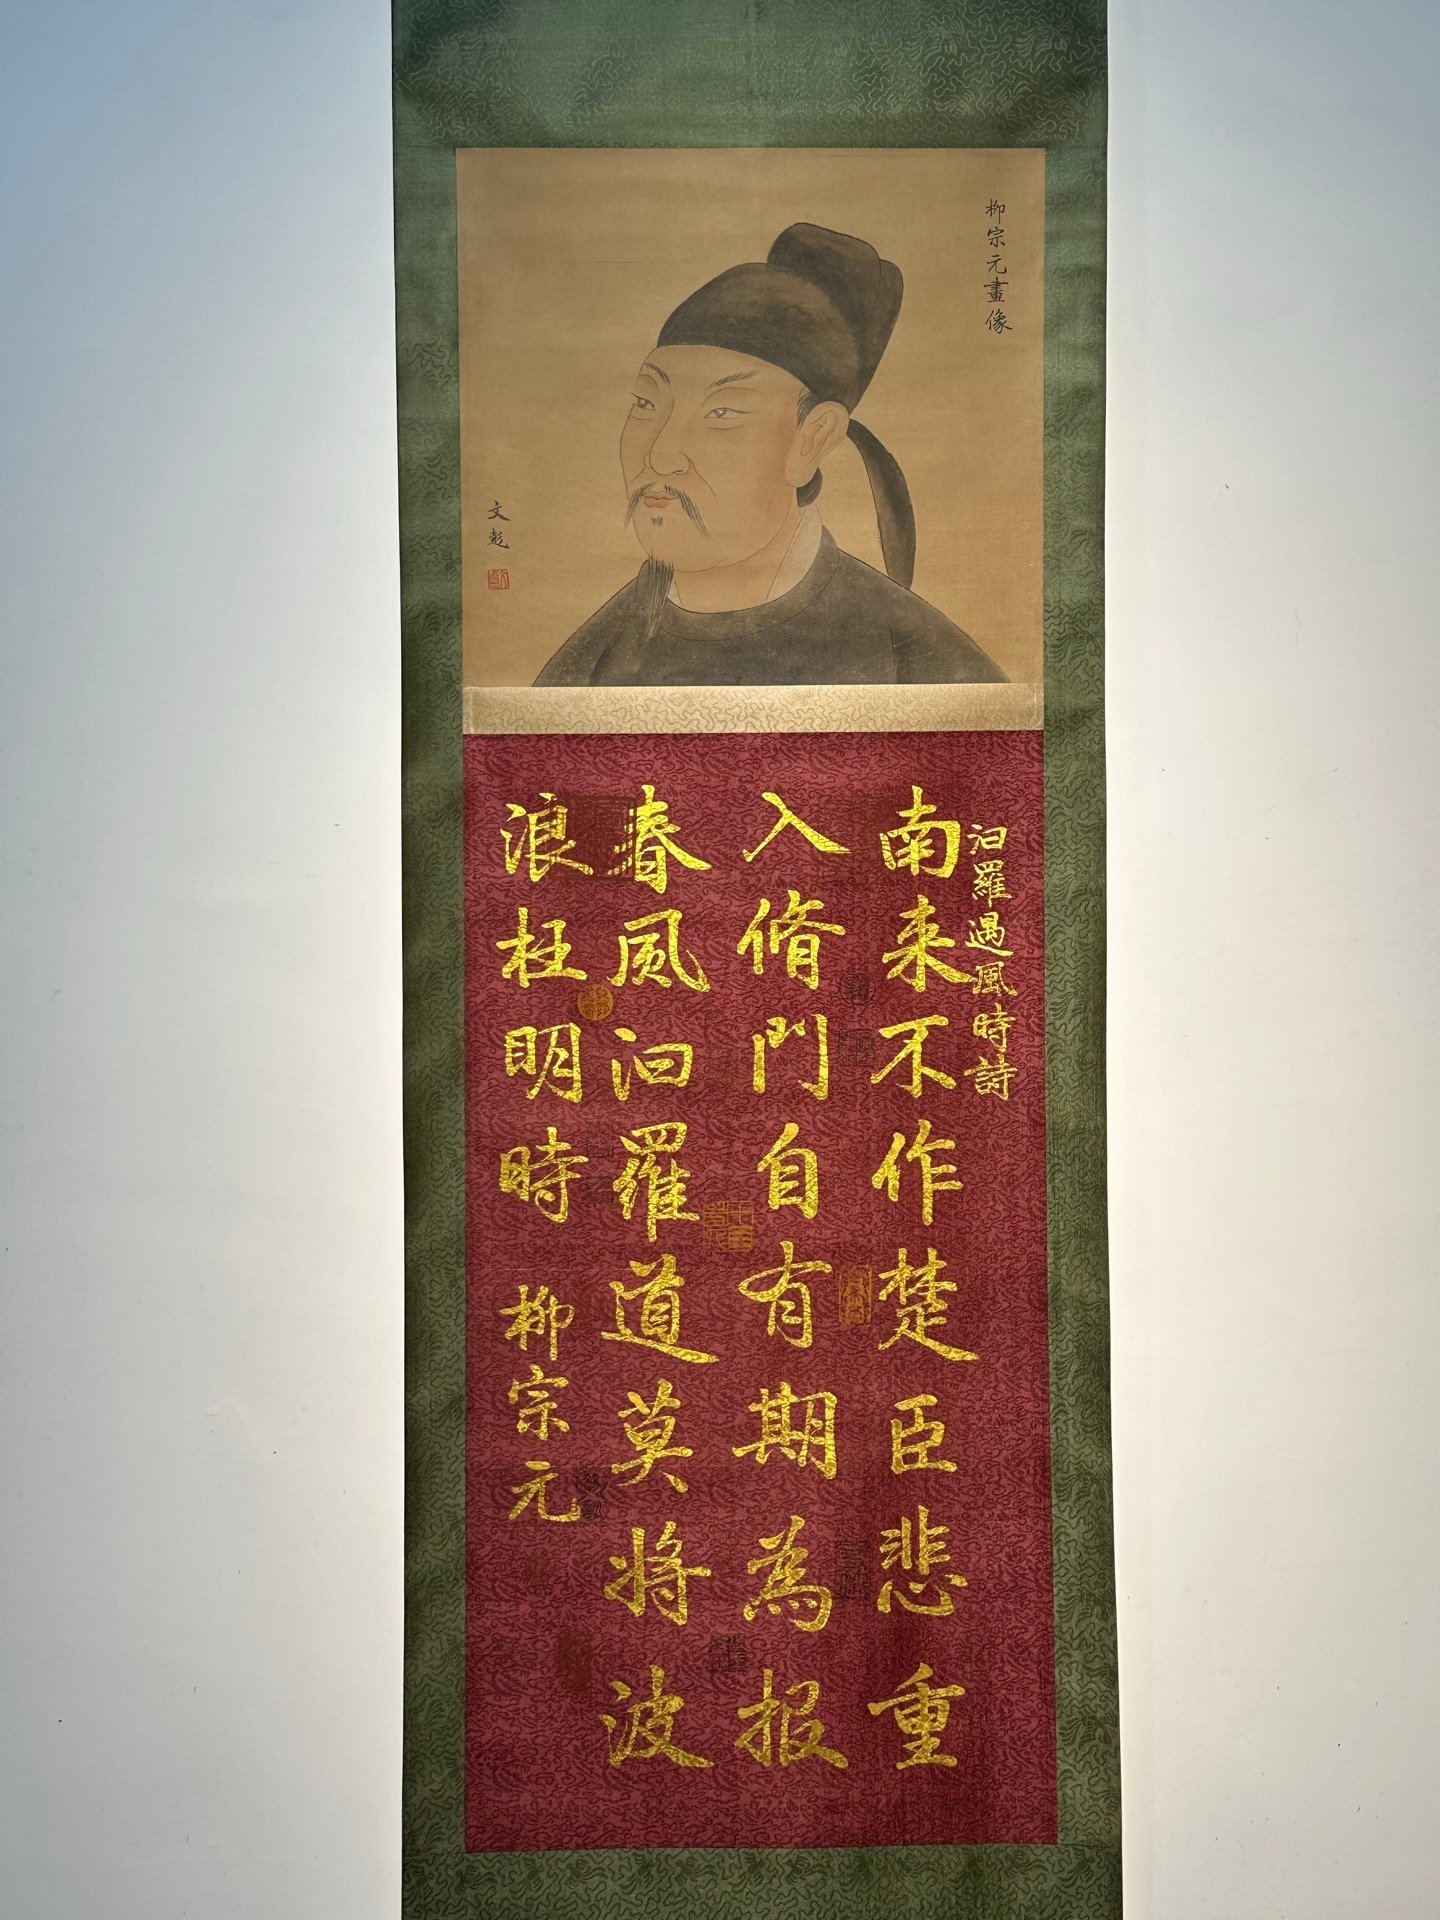 柳宗元畫像
文彭
汨羅遇風時詩
南来不作楚臣悲重
入脩門自有期為報
春風汨羅道莫將波
浪枉明時
柳宗元